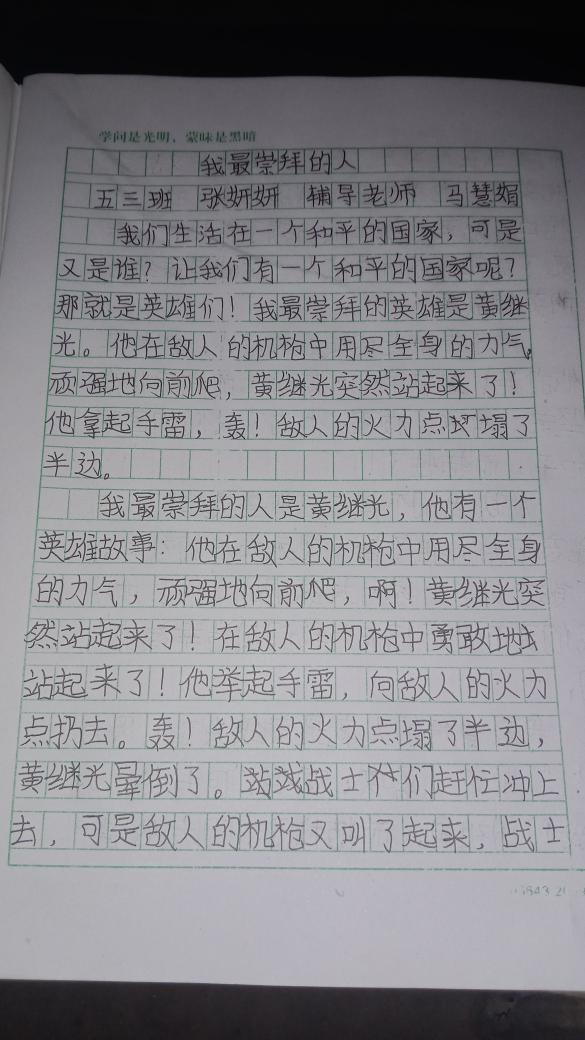 学问是光明，蒙昧是黑暗
我最崇拜的人
五三班 张妍妍 辅导老师 马慧娟
我们生活在一个和平的国家，可是
又是谁？让我们有一个和平的国家呢？
那就是英雄们！我最崇拜的英雄是黄继
光。他在敌人的机枪中用尽全身的力气，
顽强地向前爬，黄继光突然站起来了！
他拿起手雷，轰！敌人的火力点坍塌了
半边。
我最崇拜的人是黄继光，他有一个
英雄故事：他在敌人的机枪中用尽全身
的力气，顽强地向前爬，啊！黄继光突
然站起来了！在敌人的机枪中勇敢地
站起来了！他举起手雷，向敌人的火力
点扔去。轰！敌人的火力点塌了半边，
黄继光晕倒了。战士们赶忙冲上
去，可是敌人的机枪又叫了起来，战士